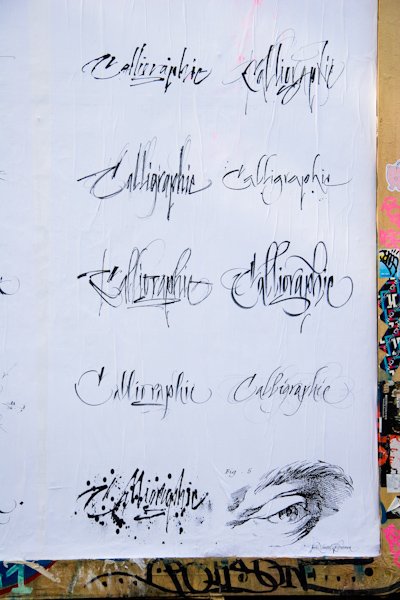 Calligraphie Calligraphie
Calligraphie Calligraphie
Calligraphie Calligraphie
Calligraphie Calligraphie
Calligraphie
Fig. 5